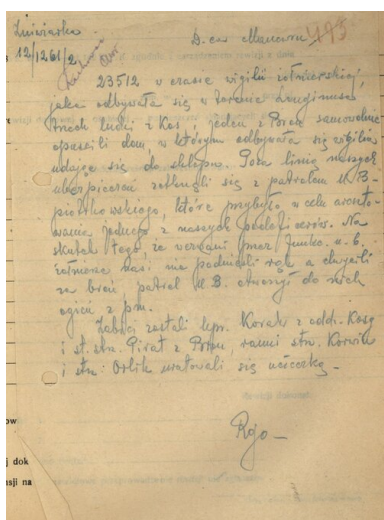 Żniwiarka
12/1261/2
D-ca Mancewu
495
23512 w czasie wigilii żołnierskiej,
jaka odbywała się w terenie Longinusa
trzech ludzi z Kos i jeden z Porem samowolnie
opuścili dom, w którym odbywała się wigilia
udając się do sklepu. Poza linią naszych
ubezpieczeń zetknęli się z patrolem U.B.
piotrkowskiego, które przybyło w celu areszto-
wania jednego z naszych podoficerów. Na
skutek tego, że wezwani przez funkc. u.b.
żołnierze nasi nie podnieśli rąk a chwycili
za broń, patrol U.B. otworzył do nich
ogień z pm.
Zabici zostali kpr. Korab z oddz. Kosy
i st. strz. Pirat z ranni strz. Korwin
i strz. Orlik uratowali się ucieczką -
Rojo -
ów
j dok
nsji na